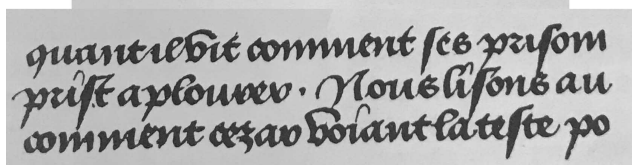 quant il vit comment ses prisom
prist a plourer . Nous lisons au
comment cezar voiant la teste po